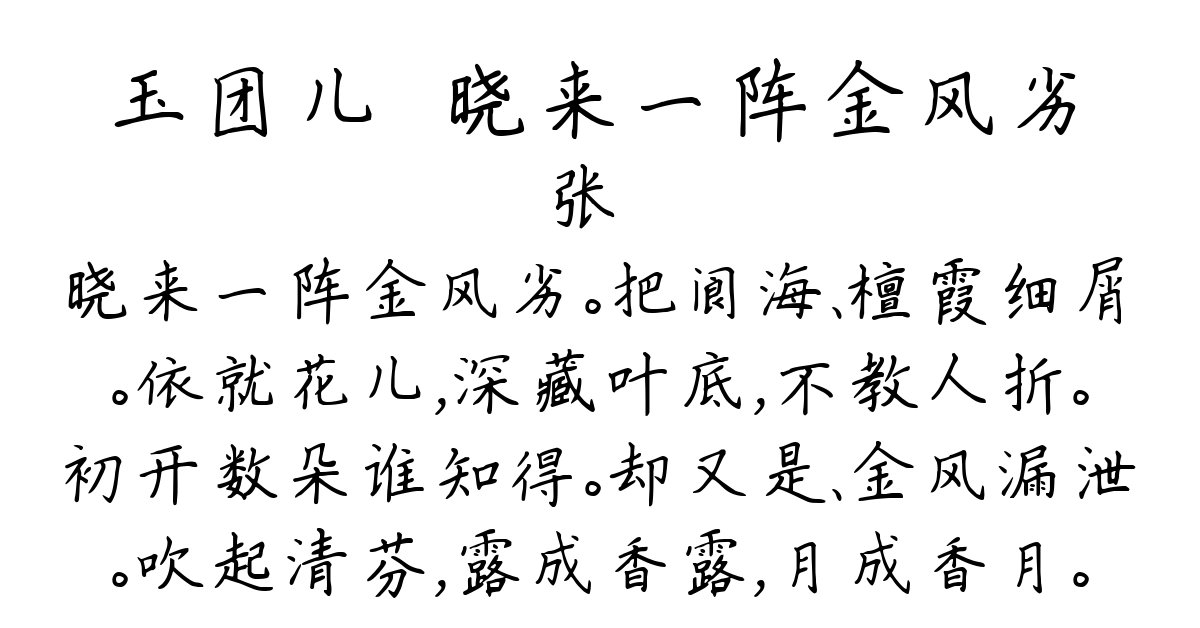 玉团儿 晓来一阵金风劣
张
晓来一阵金风劣。把阆海、檀霞细屑
。依就花儿,深藏叶底,不教人折。
初开数朵谁知得。却又是、金风漏泄
。吹起清芬,露成香露,月成香月。